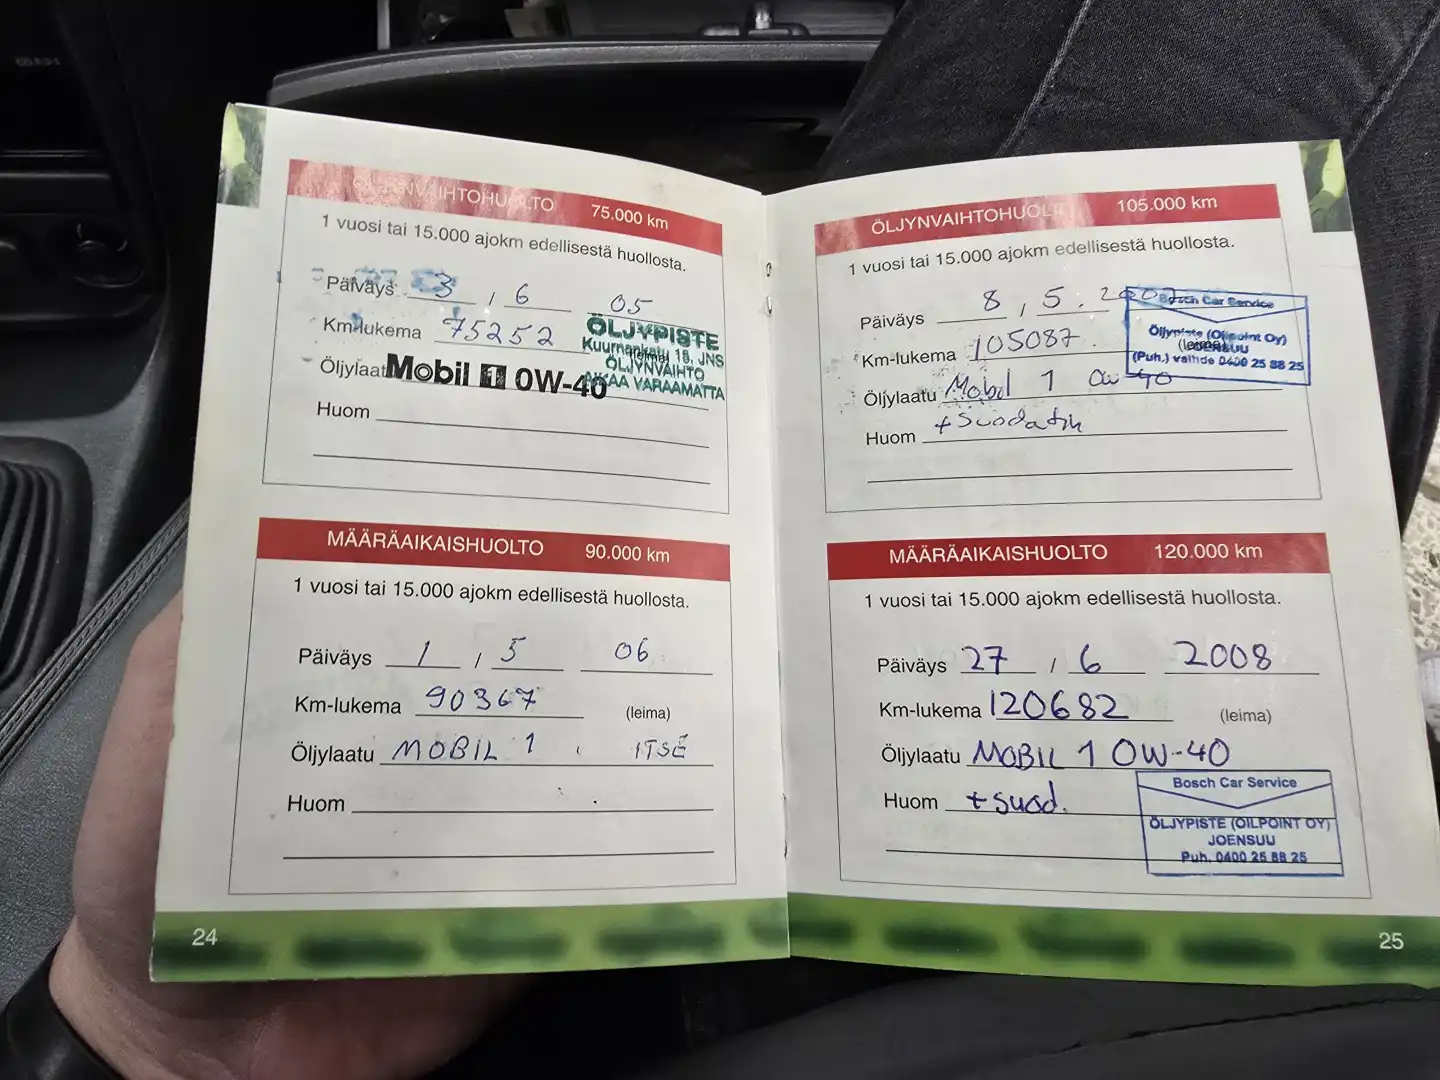 ÖLJYNVAIHTOHUOLTO 75.000 km
1 vuosi tai 15.000 ajokm edellisestä huollosta.
Päiväys 3 / 6 05
Km-lukema 75252
ÖLJYPISTE
Kuurnankatu 18, JNS
(leima)
ÖLJYNVAIHTO
AIKAA VARAAMATTA
Öljylaatu Mobil 1 0W-40
Huom
MÄÄRÄAIKAISHUOLTO 90.000 km
1 vuosi tai 15.000 ajokm edellisestä huollosta.
Päiväys 1 / 5 06
Km-lukema 90367 (leima)
Öljylaatu MOBIL 1 ITSE
Huom
24
ÖLJYNVAIHTOHUOLTO 105.000 km
1 vuosi tai 15.000 ajokm edellisestä huollosta.
Päiväys 8 / 5. 2007
Km-lukema 105087. (leima)
Bosch Car Service
Öljypiste (Oilpoint Oy)
JOENSUU
(Puh.) vaihde 0400 25 88 25
Öljylaatu Mobil 1 0w-40
Huom + Suodatin
MÄÄRÄAIKAISHUOLTO 120.000 km
1 vuosi tai 15.000 ajokm edellisestä huollosta.
Päiväys 27 / 6 2008
Km-lukema 120682 (leima)
Öljylaatu MOBIL 1 0W-40
Huom + suod.
Bosch Car Service
ÖLJYPISTE (OILPOINT OY)
JOENSUU
Puh. 0400 25 88 25
25